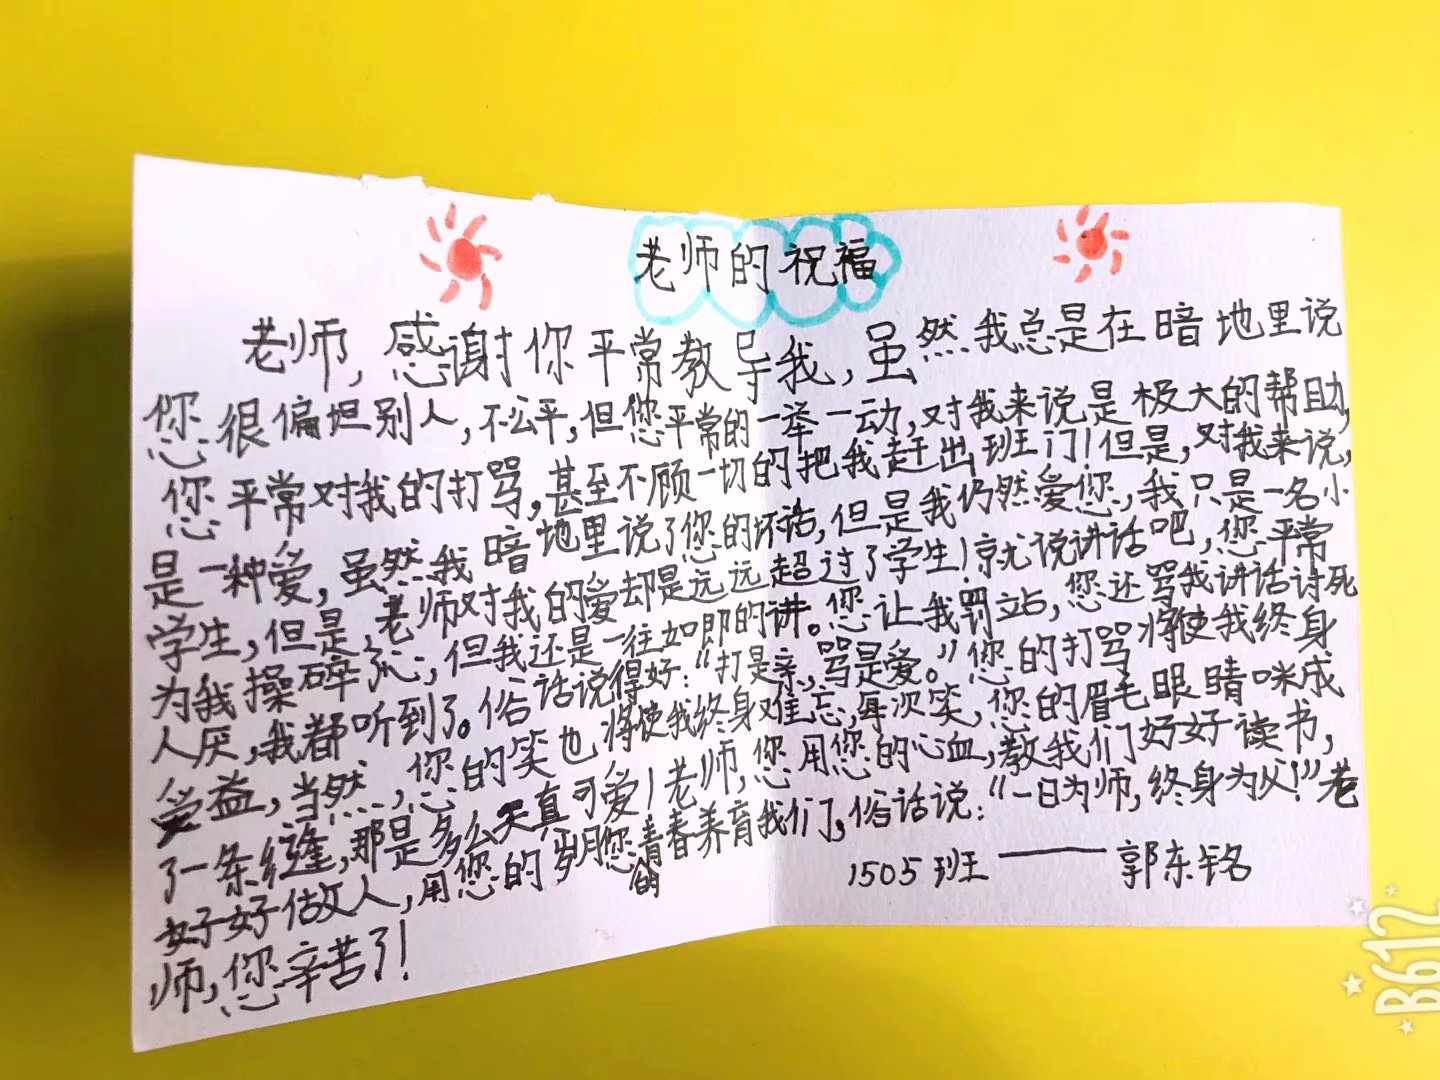 老师的祝福
老师,感谢你平常教导我,虽然我总是在暗地里说
您很偏坦别人,不公平,但您平常的一举一动,对我来说是极大的帮助,
您平常对我的打骂,甚至不顾一切的把我赶出班门!但是,对我来说,
是一种爱,虽然我暗地里说了您的坏话,但是我仍然爱您,我只是一名小
学生,但是,老师对我的爱却是远远超过了学生!就说讲话吧,您平常
为我操碎了心,但我还是一往如即的讲。您让我罚站,您还骂我讲话讨死
人厌,我都听到了。俗话说得好:“打是亲,骂是爱。”您的打骂将使我终身
受益,当然,您的笑也将使我终身难忘,每次笑,您的眉毛眼睛咪成
了一条缝,那是多么天真可爱!老师,您用您的心血,教我们好好读书,
好好做人,用您的岁月您的青春养育我们,俗话说:“一日为师,终身为父!”老
师,您辛苦了!
1505班——郭东铭
B612